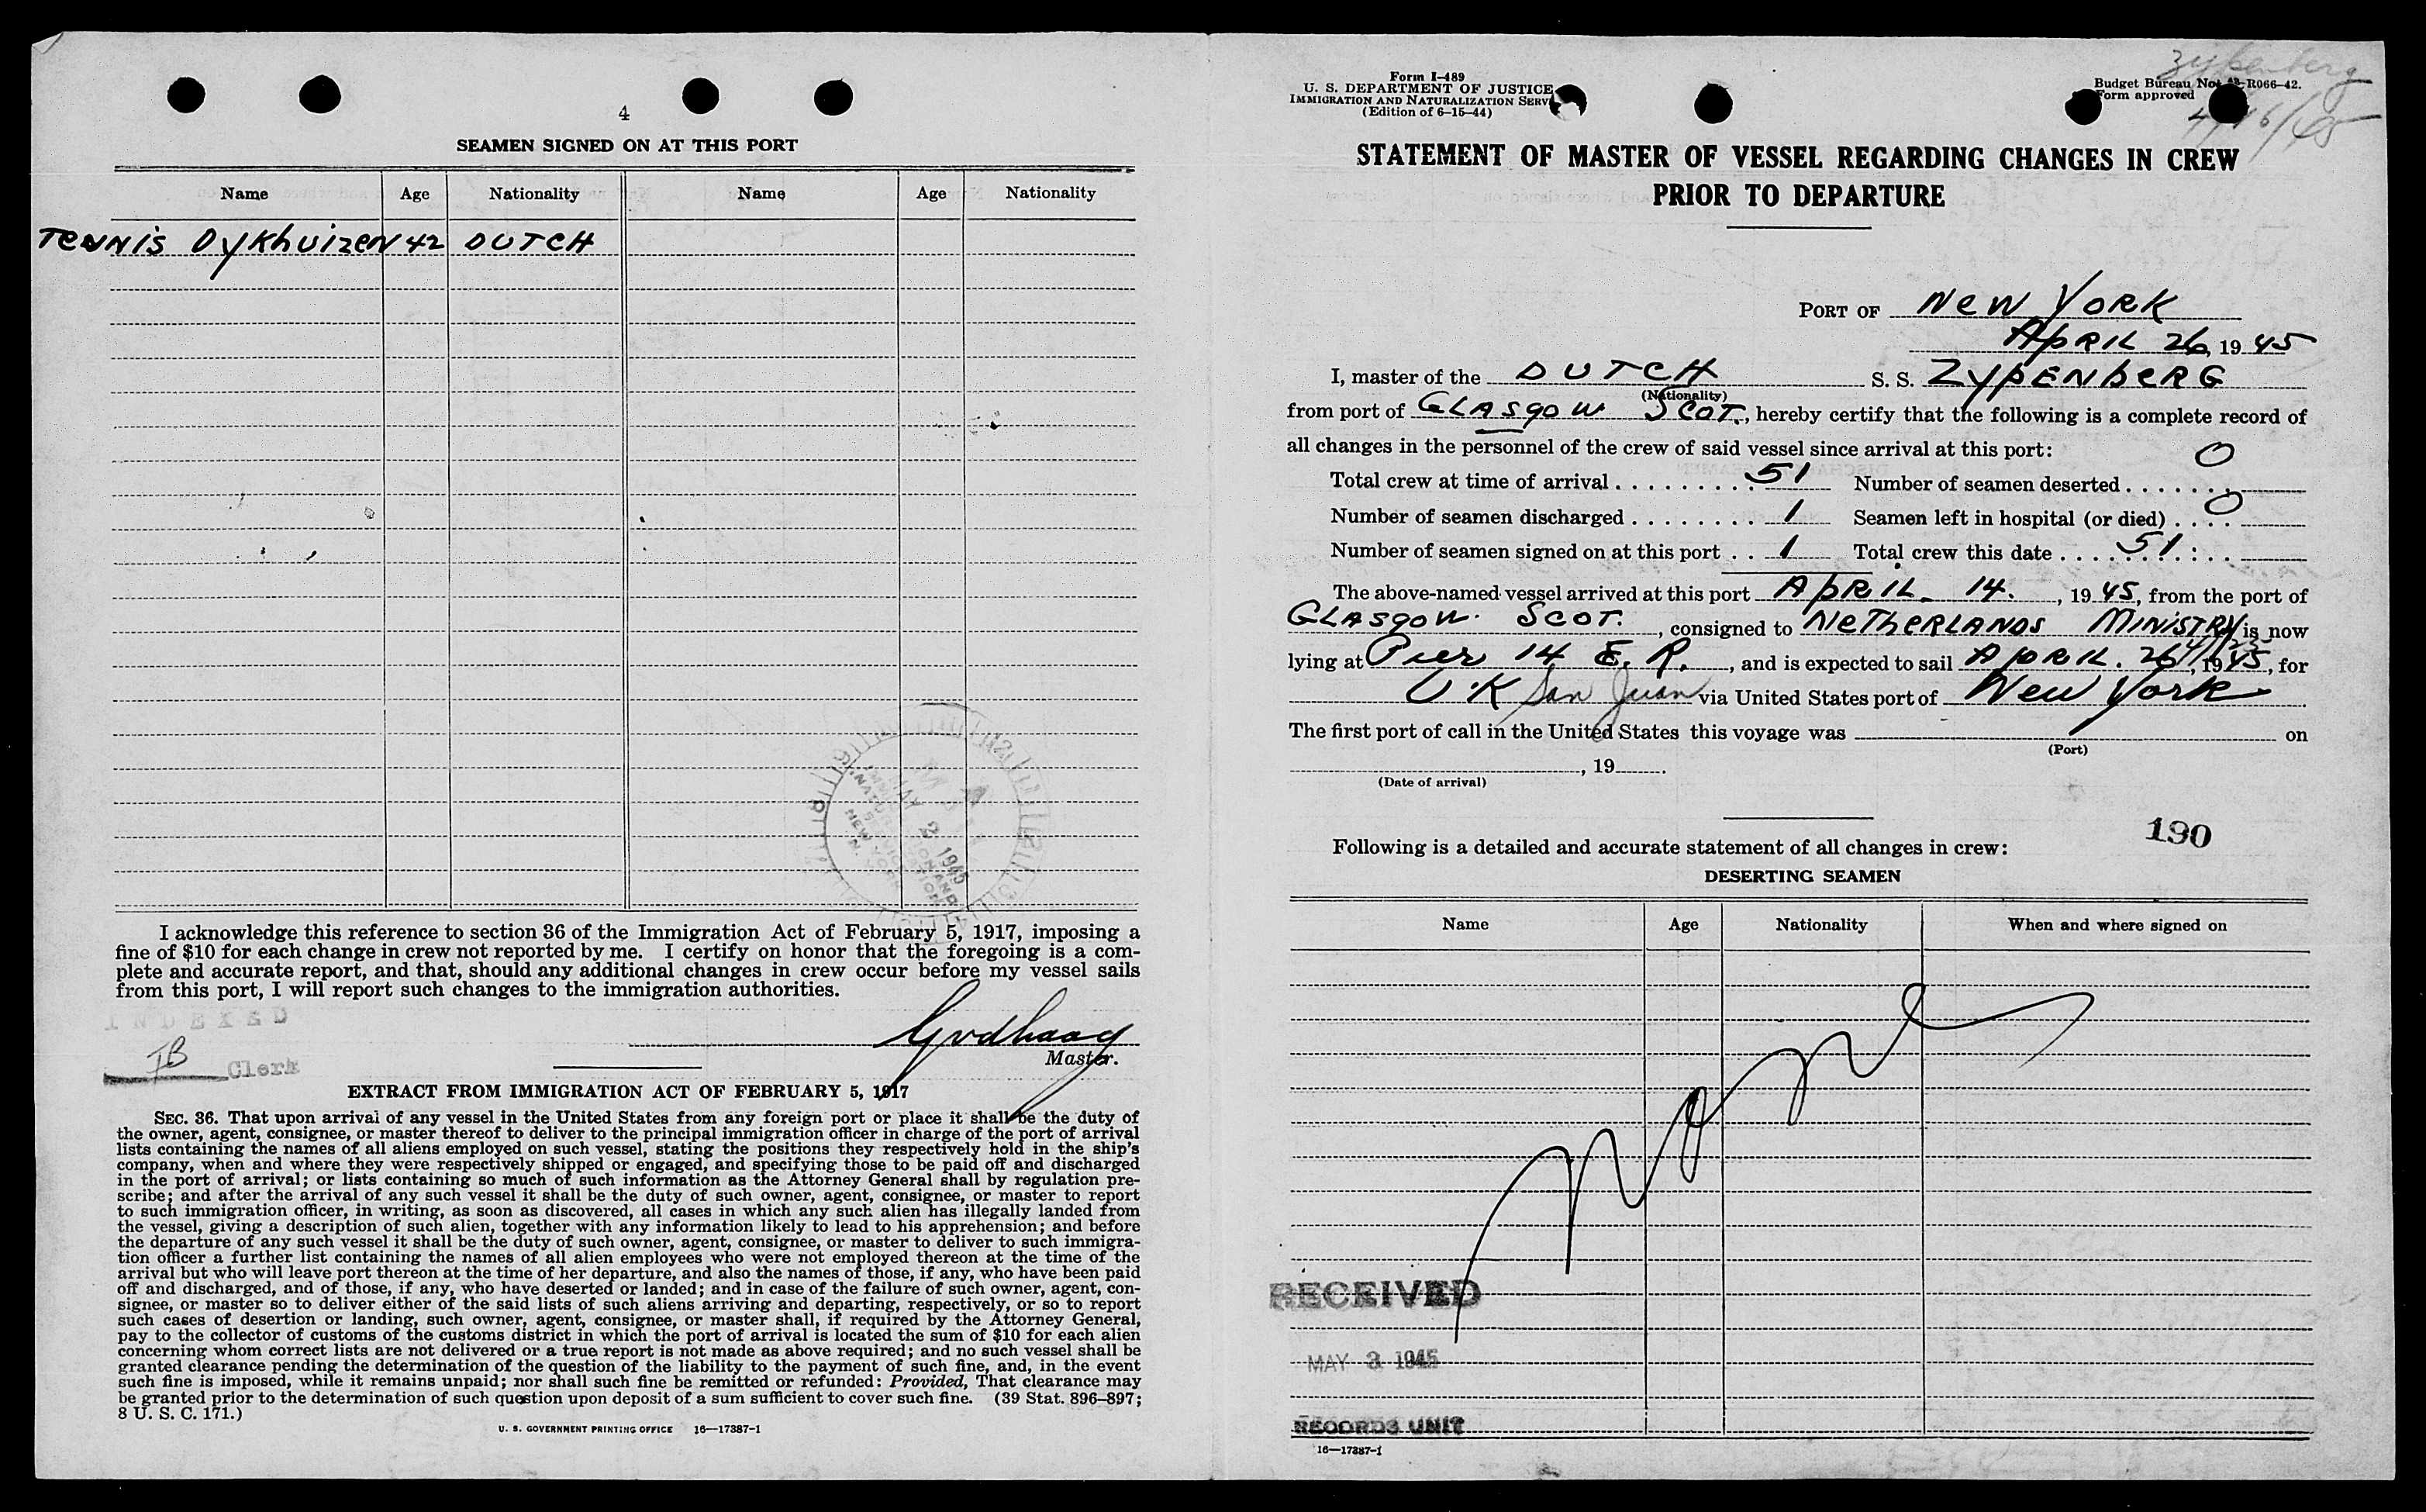 4
SEAMEN SIGNED ON AT THIS PORT
Name Age Nationality Name Age Nationality
Tennis Dykhuizen 42 DUTCH
I acknowledge this reference to section 36 of the Immigration Act of February 5, 1917, imposing a
fine of $10 for each change in crew not reported by me. I certify on honor that the foregoing is a com-
plete and accurate report, and that, should any additional changes in crew occur before my vessel sails
from this port, I will report such changes to the immigration authorities.
INDEXED
JB Clerk
Master.
EXTRACT FROM IMMIGRATION ACT OF FEBRUARY 5, 1917
SEC. 36. That upon arrival of any vessel in the United States from any foreign port or place it shall be the duty of
the owner, agent, consignee, or master thereof to deliver to the principal immigration officer in charge of the port of arrival
lists containing the names of all aliens employed on such vessel, stating the positions they respectively hold in the ship's
company, when and where they were respectively shipped or engaged, and specifying those to be paid off and discharged
in the port of arrival; or lists containing so much of such information as the Attorney General shall by regulation pre-
scribe; and after the arrival of any such vessel it shall be the duty of such owner, agent, consignee, or master to report
to such immigration officer, in writing, as soon as discovered, all cases in which any such alien has illegally landed from
the vessel, giving a description of such alien, together with any information likely to lead to his apprehension; and before
the departure of any such vessel it shall be the duty of such owner, agent, consignee, or master to deliver to such immigra-
tion officer a further list containing the names of all alien employees who were not employed thereon at the time of the
arrival but who will leave port thereon at the time of her departure, and also the names of those, if any, who have been paid
off and discharged, and of those, if any, who have deserted or landed; and in case of the failure of such owner, agent, con-
signee, or master so to deliver either of the said lists of such aliens arriving and departing, respectively, or so to report
such cases of desertion or landing, such owner, agent, consignee, or master shall, if required by the Attorney General,
pay to the collector of customs of the customs district in which the port of arrival is located the sum of $10 for each alien
concerning whom correct lists are not delivered or a true report is not made as above required; and no such vessel shall be
granted clearance pending the determination of the question of the liability to the payment of such fine, and, in the event
such fine is imposed, while it remains unpaid; nor shall such fine be remitted or refunded: Provided, That clearance may
be granted prior to the determination of such question upon deposit of a sum sufficient to cover such fine. (39 Stat. 896–897;
8 U. S. C. 171.)
U. S. GOVERNMENT PRINTING OFFICE 16—17387-1
Form I-489
U. S. DEPARTMENT OF JUSTICE
IMMIGRATION AND NATURALIZATION SERV
(Edition of 6-15-44)
Zypenberg
Budget Bureau No. R066-42.
Form approved
STATEMENT OF MASTER OF VESSEL REGARDING CHANGES IN CREW
PRIOR TO DEPARTURE
PORT OF New York
April 26, 19 45
I, master of the DUTCH S. S. ZYPENBERG
(Nationality)
from port of GLASGOW SCOT., hereby certify that the following is a complete record of
all changes in the personnel of the crew of said vessel since arrival at this port:
Total crew at time of arrival 51 Number of seamen deserted 0
Number of seamen discharged 1 Seamen left in hospital (or died) 0
Number of seamen signed on at this port 1 Total crew this date 51
The above-named vessel arrived at this port April 14., 19 45, from the port of
GLASGOW. SCOT., consigned to NETHERLANDS MINISTRY is now
lying at Pier 14 E. R., and is expected to sail April. 26, 19 45, for
U.K San Juan via United States port of New York
The first port of call in the United States this voyage was on
(Port)
, 19 .
(Date of arrival)
190
Following is a detailed and accurate statement of all changes in crew:
DESERTING SEAMEN
Name Age Nationality When and where signed on
None
RECEIVED
MAY 3 1945
RECORDS UNIT
16—17387-1